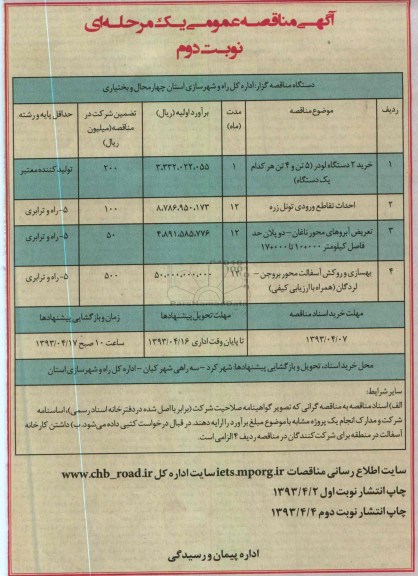 آگهی مناقصه عمومی یک مرحله‌ای
نوبت دوم
دستگاه مناقصه گزار: اداره کل راه و شهرسازی استان چهارمحال و بختیاری
ردیف موضوع مناقصه مدت (ماه) برآورد اولیه (ریال) تضمین شرکت در مناقصه (میلیون ریال) حداقل پایه و رشته
۱ خرید ۲ دستگاه لودر (۵ تن و ۴ تن هر کدام یک دستگاه) ۱ ۳،۳۳۲،۰۲۲،۰۵۵ ۲۰۰ تولید کننده معتبر
۲ احداث تقاطع ورودی تونل زره ۱۲ ۸،۷۸۶،۹۵۰،۱۷۳ ۱۰۰ ۵- راه و ترابری
۳ تعریض آبروهای محور ناغان – دوپلان حد فاصل کیلومتر ۱۰+۰۰۰ تا ۱۷+۰۰۰ ۱۲ ۴،۸۹۱،۵۸۵،۷۷۶ ۵۰ ۵- راه و ترابری
۴ بهسازی و روکش آسفالت محور بروجن – لردگان (همراه با ارزیابی کیفی) ۱۲ ۵۰،۰۰۰،۰۰۰،۰۰۰ ۵۰۰ ۵- راه و ترابری
مهلت خرید اسناد مناقصه مهلت تحویل پیشنهادها زمان و بازگشایی پیشنهادها
۱۳۹۳/۰۴/۰۷ تا پایان وقت اداری ۱۳۹۳/۰۴/۱۶ ساعت ۱۰ صبح ۱۳۹۳/۰۴/۱۷
محل خرید اسناد، تحویل و بازگشایی پیشنهادها: شهر کرد – سه راهی شهر کیان – اداره کل راه و شهرسازی استان
سایر شرایط:
الف) اسناد مناقصه به مناقصه گرانی که تصویر گواهینامه صلاحیت شرکت (برابر با اصل شده در دفترخانه اسناد رسمی)، اساسنامه
شرکت و مدارک انجام یک پروژه مشابه با موضوع مبلغ برآورد را ارایه دهند. در قبال درخواست کتبی داده می‌شود. ب) داشتن کارخانه
آسفالت در منطقه برای شرکت کنندگان در مناقصه ردیف ۴ الزامی است.
سایت اطلاع رسانی مناقصات iets.mporg.ir سایت اداره کل www.chb_road.ir
چاپ انتشار نوبت اول ۱۳۹۳/۴/۲
چاپ انتشار نوبت دوم ۱۳۹۳/۴/۴
اداره پیمان و رسیدگی